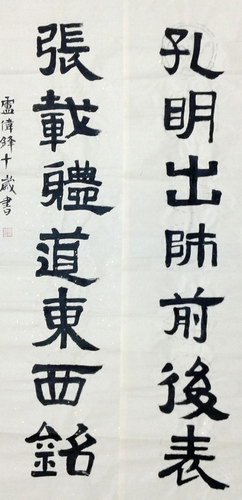 孔明出師前後表
張載軆道東西銘
盧偉鋒十歲書